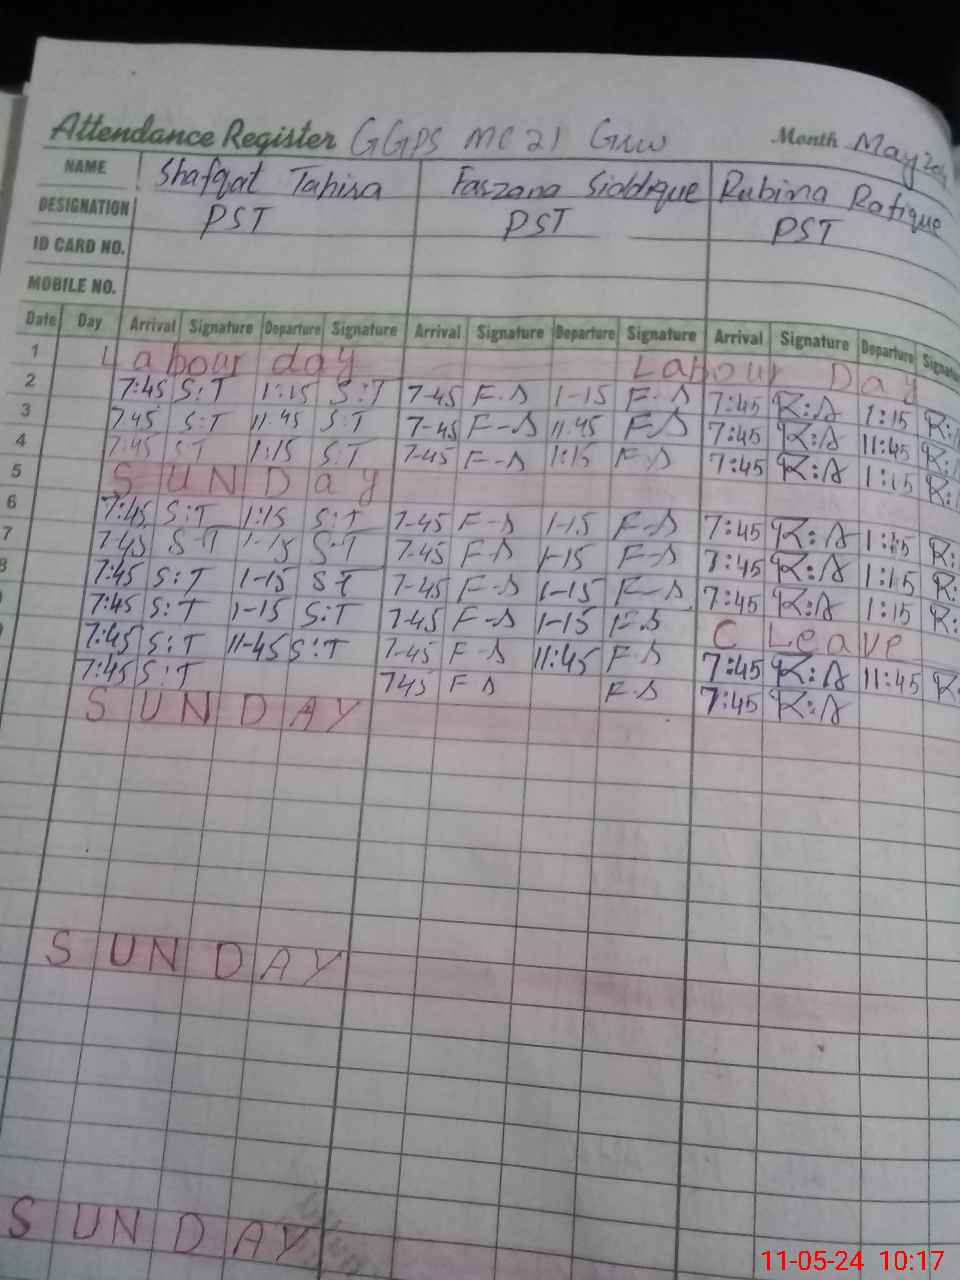 Attendance Register GGPS MC 21 Month May
NAME Shafqat Tahira Farzana Siddique Rubina Rafique
DESIGNATION PST PST PST
ID CARD NO.
MOBILE NO.
Date Day Arrival Signature Departure Signature Arrival Signature Departure Signature Arrival Signature Departure
1 Labour day Labour Day
2 7:45 S:T 1:15 S:T 7-45 F.S 1-15 F.S 7:45 R:A 1:15 R:
3 7:45 S:T 11:45 S:T 7-45 F-S 11:45 FS 7:45 R:A 11:45 R:
4 7:45 ST 1:15 S:T 7-45 F-S 1:15 F.S 7:45 R:A 1:15 R:
5 SUNDay
6 7:45 S:T 1:15 S:T 7-45 F-S 1-15 F-S 7:45 R:A 1:15 R:
7 7:45 S-T 1-15 S-T 7-45 F-S 1-15 F-S 7:45 R:A 1:15 R:
8 7:45 S:T 1-15 ST 7-45 F-S 1-15 F-S 7:45 R:A 1:15 R:
7:45 S:T 1-15 S:T 7-45 F-S 1-15 F.S C Leave
7:45 S:T 11-45 S:T 7-45 F-S 11:45 F.S 7:45 R:A 11:45 R:
7:45 S:T 745 F S F.S 7:45 R:A
SUNDAY
SUNDAY
SUNDAY
11-05-24 10:17